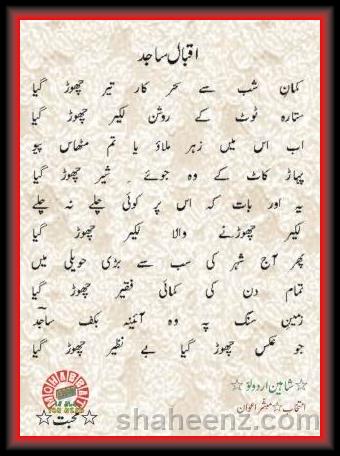 اقبال ساجد
کمان شب سے سحر کار تیر چھوڑ گیا
ستارہ ٹوٹ کے روشن لکیر چھوڑ گیا
اب اس میں زہر ملاؤ یا تم مٹھاس پیو
پہاڑ کاٹ کے وہ جوئے شیر چھوڑ گیا
یہ اور بات کہ اس پر کوئی چلے نہ چلے
لکیر چھوڑنے والا لکیر چھوڑ گیا
پھر آج شہر کی سب سے بڑی حویلی میں
تمام دن کی کمائی فقیر چھوڑ گیا
زمین سنگ پہ وہ آئینہ بکف ساجد
جو عکس چھوڑ گیا بے نظیر چھوڑ گیا
☆شاہین اردو لو☆
انتخاب☆مبشر اعوان
MOHABBAT
☆محبت☆
shaheenz.com